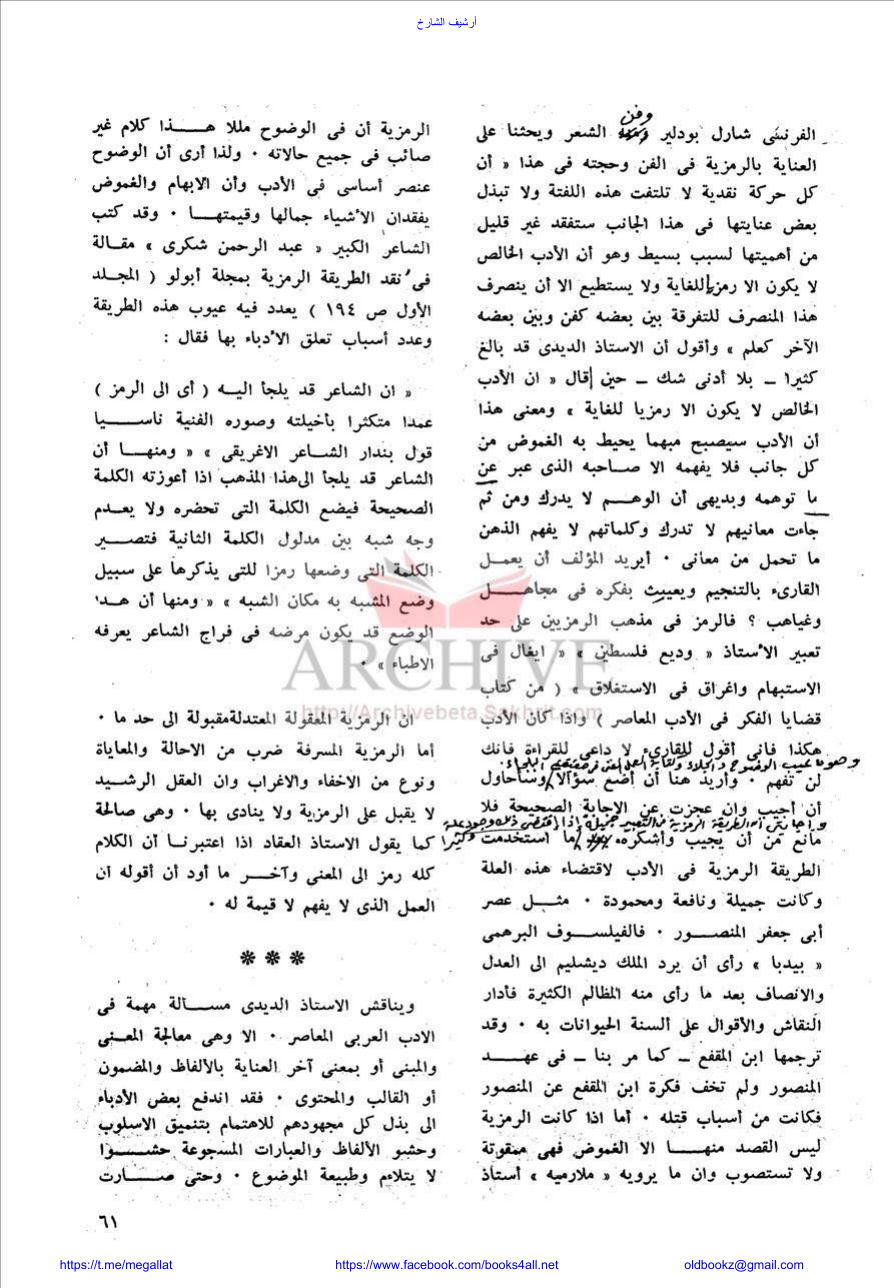 أرشيف الشارخ
وفن
الفرنسى شارل بودلير الشعر ويحثنا على
العناية بالرمزية فى الفن وحجته فى هذا « أن
كل حركة نقدية لا تلتفت هذه اللفتة ولا تبذل
بعض عنايتها فى هذا الجانب ستفقد غير قليل
من أهميتها لسبب بسيط وهو أن الأدب الخالص
لا يكون الا رمزيا للغاية ولا يستطيع الا أن ينصرف
هذا المنصرف للتفرقة بين بعضه كفن وبين بعضه
الآخر كعلم » وأقول أن الاستاذ الديدى قد بالغ
كثيرا ــ بلا أدنى شك ــ حين قال « ان الأدب
الخالص لا يكون الا رمزيا للغاية » ومعنى هذا
أن الأدب سيصبح مبهما يحيط به الغموض من
كل جانب فلا يفهمه الا صاحبه الذى عبر عن
ما توهمه وبديهى أن الوهم لا يدرك ومن ثم
جاءت معانيهم لا تدرك وكلماتهم لا يفهم الذهن
ما تحمل من معانى ٠ أيريد المؤلف أن يعمل
القارىء بالتنجيم ويعيث بفكره فى مجاهل
وغياهب ؟ فالرمز فى مذهب الرمزيين على حد
تعبير الأستاذ « وديع فلسطين » « ايغال فى
الاستبهام واغراق فى الاستغلاق » ( من كتاب
قضايا الفكر فى الأدب المعاصر ) واذا كان الأدب
هكذا فانى أقول للقارىء لا داعى للقراءة فانك
لن تفهم ٠ وأريد هنا أن أضع سؤالا وسأحاول
أن أجيب وان عجزت عن الاجابة الصحيحة فلا
مانع من أن يجيب وأشكره ٠ ما استخدمت وكثيرا
الطريقة الرمزية فى الأدب لاقتضاء هذه العلة
وكانت جميلة ونافعة ومحمودة ٠ مثل عصر
أبى جعفر المنصور ٠ فالفيلسوف البرهمى
« بيدبا » رأى أن يرد الملك ديشليم الى العدل
والانصاف بعد ما رأى منه المظالم الكثيرة فأدار
النقاش والأقوال على ألسنة الحيوانات به ٠ وقد
ترجمها ابن المقفع ــ كما مر بنا ــ فى عهد
المنصور ولم تخف فكرة ابن المقفع عن المنصور
فكانت من أسباب قتله ٠ أما اذا كانت الرمزية
ليس القصد منها الا الغموض فهى ممقوتة
ولا تستصوب وان ما يرويه « ملارميه » أستاذ
الرمزية أن فى الوضوح مللا هذا كلام غير
صائب فى جميع حالاته ٠ ولذا أرى أن الوضوح
عنصر أساسى فى الأدب وأن الابهام والغموض
يفقدان الأشياء جمالها وقيمتها ٠ وقد كتب
الشاعر الكبير « عبد الرحمن شكرى » مقالة
فى نقد الطريقة الرمزية بمجلة أبولو ( المجلد
الأول ص ١٩٤ ) يعدد فيه عيوب هذه الطريقة
وعدد أسباب تعلق الأدباء بها فقال :
« ان الشاعر قد يلجأ اليه ( أى الى الرمز )
عمدا متكثرا بأخيلته وصوره الفنية ناسيا
قول بندار الشاعر الاغريقى » « ومنها أن
الشاعر قد يلجأ الى هذا المذهب اذا أعوزته الكلمة
الصحيحة فيضع الكلمة التى تحضره ولا يعدم
وجه شبه بين مدلول الكلمة الثانية فتصير
الكلمة التى وضعها رمزا للتى يذكرها على سبيل
وضع المشبه به مكان الشبه » « ومنها أن هذا
الوضع قد يكون مرضه فى فراج الشاعر يعرفه
الاطباء » ٠
ان الرمزية المعقولة المعتدلة مقبولة الى حد ما ٠
أما الرمزية المسرفة ضرب من الاحالة والمعاياة
ونوع من الاخفاء والاغراب وان العقل الرشيد
لا يقبل على الرمزية ولا ينادى بها ٠ وهى صالحة
كما يقول الاستاذ العقاد اذا اعتبرنا أن الكلام
كله رمز الى المعنى وآخر ما أود أن أقوله ان
العمل الذى لا يفهم لا قيمة له ٠
***
ويناقش الاستاذ الديدى مسألة مهمة فى
الادب العربى المعاصر ٠ الا وهى معالجة المعنى
والمبنى أو بمعنى آخر العناية بالألفاظ والمضمون
أو القالب والمحتوى ٠ فقد اندفع بعض الأدباء
الى بذل كل مجهودهم للاهتمام بتنميق الاسلوب
وحشو الألفاظ والعبارات المسجوعة حشوا
لا يتلاءم وطبيعة الموضوع ٠ وحتى صارت
ARCHIVE
http://Archivebeta.Sakhrit.com
٦١
https://t.me/megallat
https://www.facebook.com/books4all.net
oldbookz@gmail.com